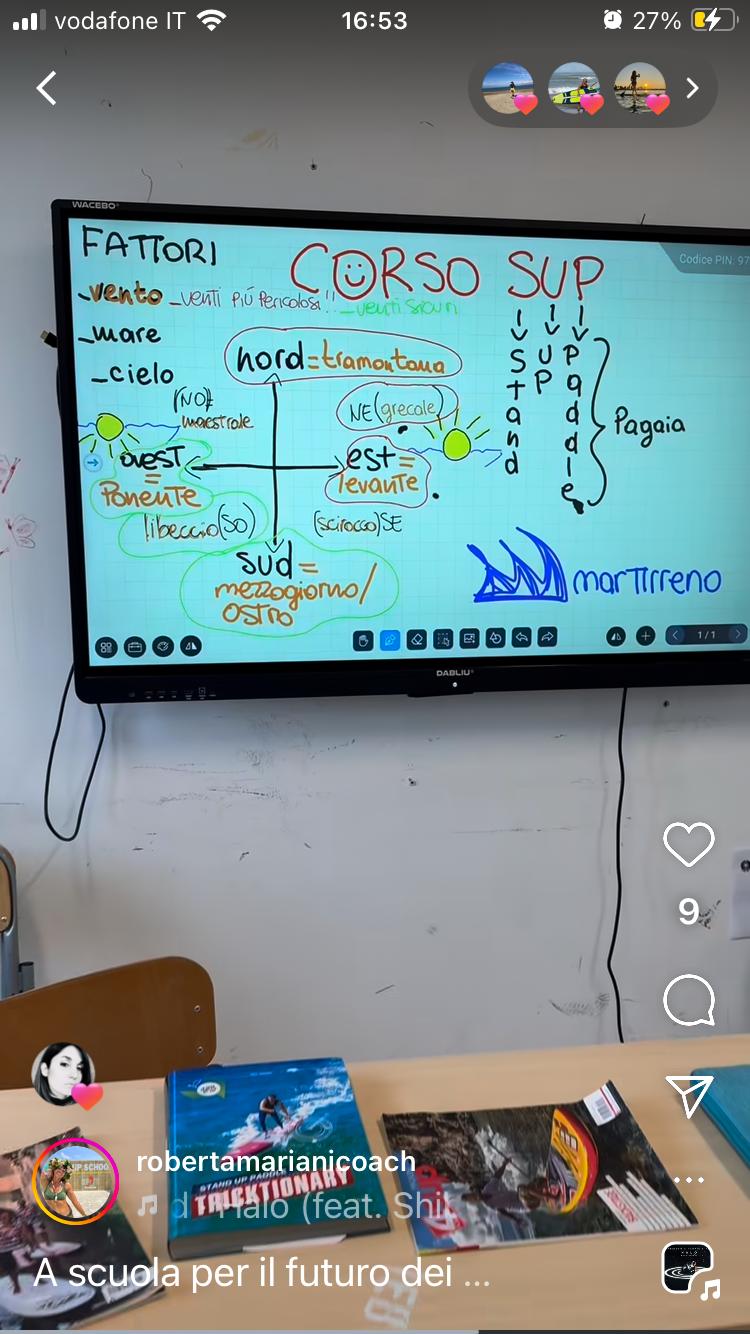 vodafone IT
16:53
27%
WACEBO
FATTORI
CORSO SUP
Codice PIN: 97
-vento -venti più pericolosi!! -venti sicuri
-mare
-cielo
nord=tramontana
(NO)
maestrale
NE(grecale)
Stand
UP
Paddle
Pagaia
ovest
=
Ponente
est=
levante
libeccio(SO)
(scirocco)SE
sud=
mezzogiorno/
ostro
mar Tirreno
1/1
DABLIU
9
STAND UP PADDLE
TRICKTIONARY
robertamarianicoach
Halo (feat. Shil
A scuola per il futuro dei ...